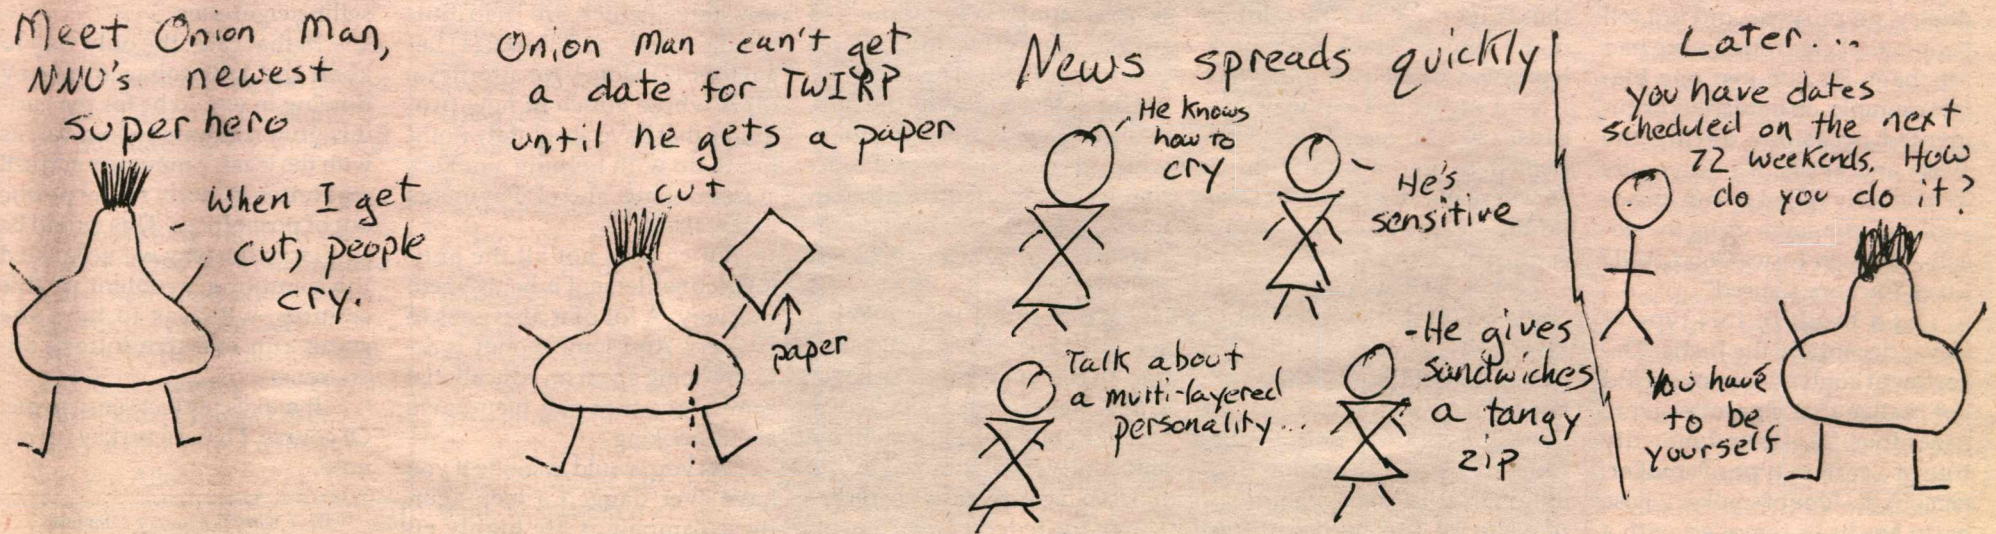 Meet Onion Man,
NNU's newest
superhero
When I get
cut, people
cry.
Onion Man can't get
a date for TWIRP
until he gets a paper
cut
paper
News spreads quickly
He knows
how to
cry
He's
sensitive
Talk about
a multi-layered
personality...
-He gives
sandwiches
a tangy
zip
Later...
you have dates
scheduled on the next
72 weekends. How
do you do it?
You have
to be
yourself